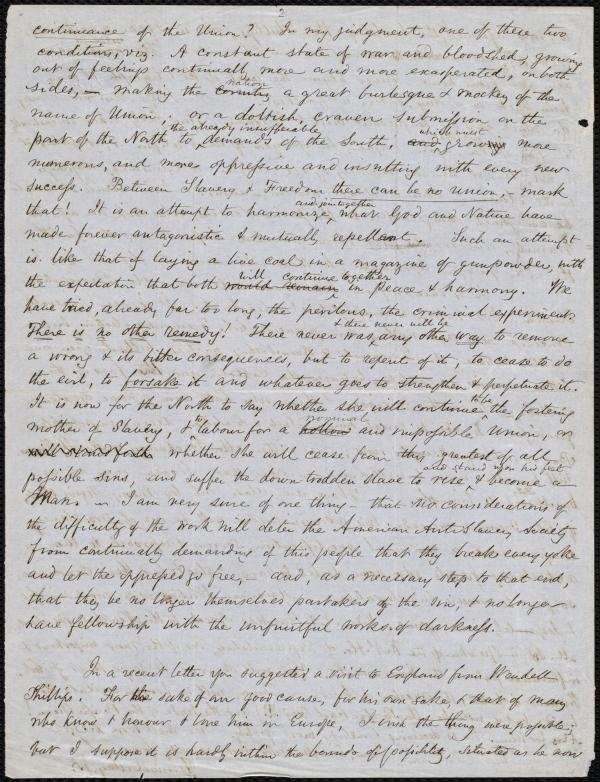 2
continuance of the Union? In my judgment, one of these two
conditions, viz. A constant state of war and bloodshed, growing
out of feelings continually more and more exasperated, on both
sides, – making the country nation a great burlesque & mockery of the
name of Union; or a doltish, craven submission on the
part of the North to the already insufferable demands of the South, and which must grow more
numerous, and more oppressive and insulting with every new
success. Between Slavery & Freedom there can be no union, – mark
that! It is an attempt to harmonize, and join together what God and Nature have
made forever antagonistic & mutually repellent. Such an attempt
is like that of laying a live coal in a magazine of gunpowder, with
the expectation that both would remain will continue together in peace & harmony. We
have tried, already far too long, the perilous, the criminal experiment.
There is no other remedy! There never was, & there never will be any other way to remove
a wrong & its bitter consequences, but to repent of it, to cease to do
the evil, to forsake it and whatever goes to strengthen & perpetuate it.
It is now for the North to say whether she will continue to be the fostering
mother of Slavery, & to labour for a hollow nominal and impossible Union, or
will stand forth whether she will cease from this greatest of all
possible sins, and suffer the down trodden slave to rise, and stand upon his feet & become a
Man. – I am very sure of one thing – that no considerations of
the difficulty of the work will deter the American Anti Slavery Society
from continually demanding of this people that they break every yoke
and let the oppressed go free, – and, as a necessary step to that end,
that they be no longer themselves partakers of the sin, & no longer
have fellowship with the unfruitful works of darkness.
In a recent letter you suggested a visit to England from Wendell
Phillips. For the sake of our good cause, for his own sake, & that of many
who know & honour & love him in Europe, I wish the thing were possible;
but I suppose it is hardly within the bounds of possibility, situated as he now